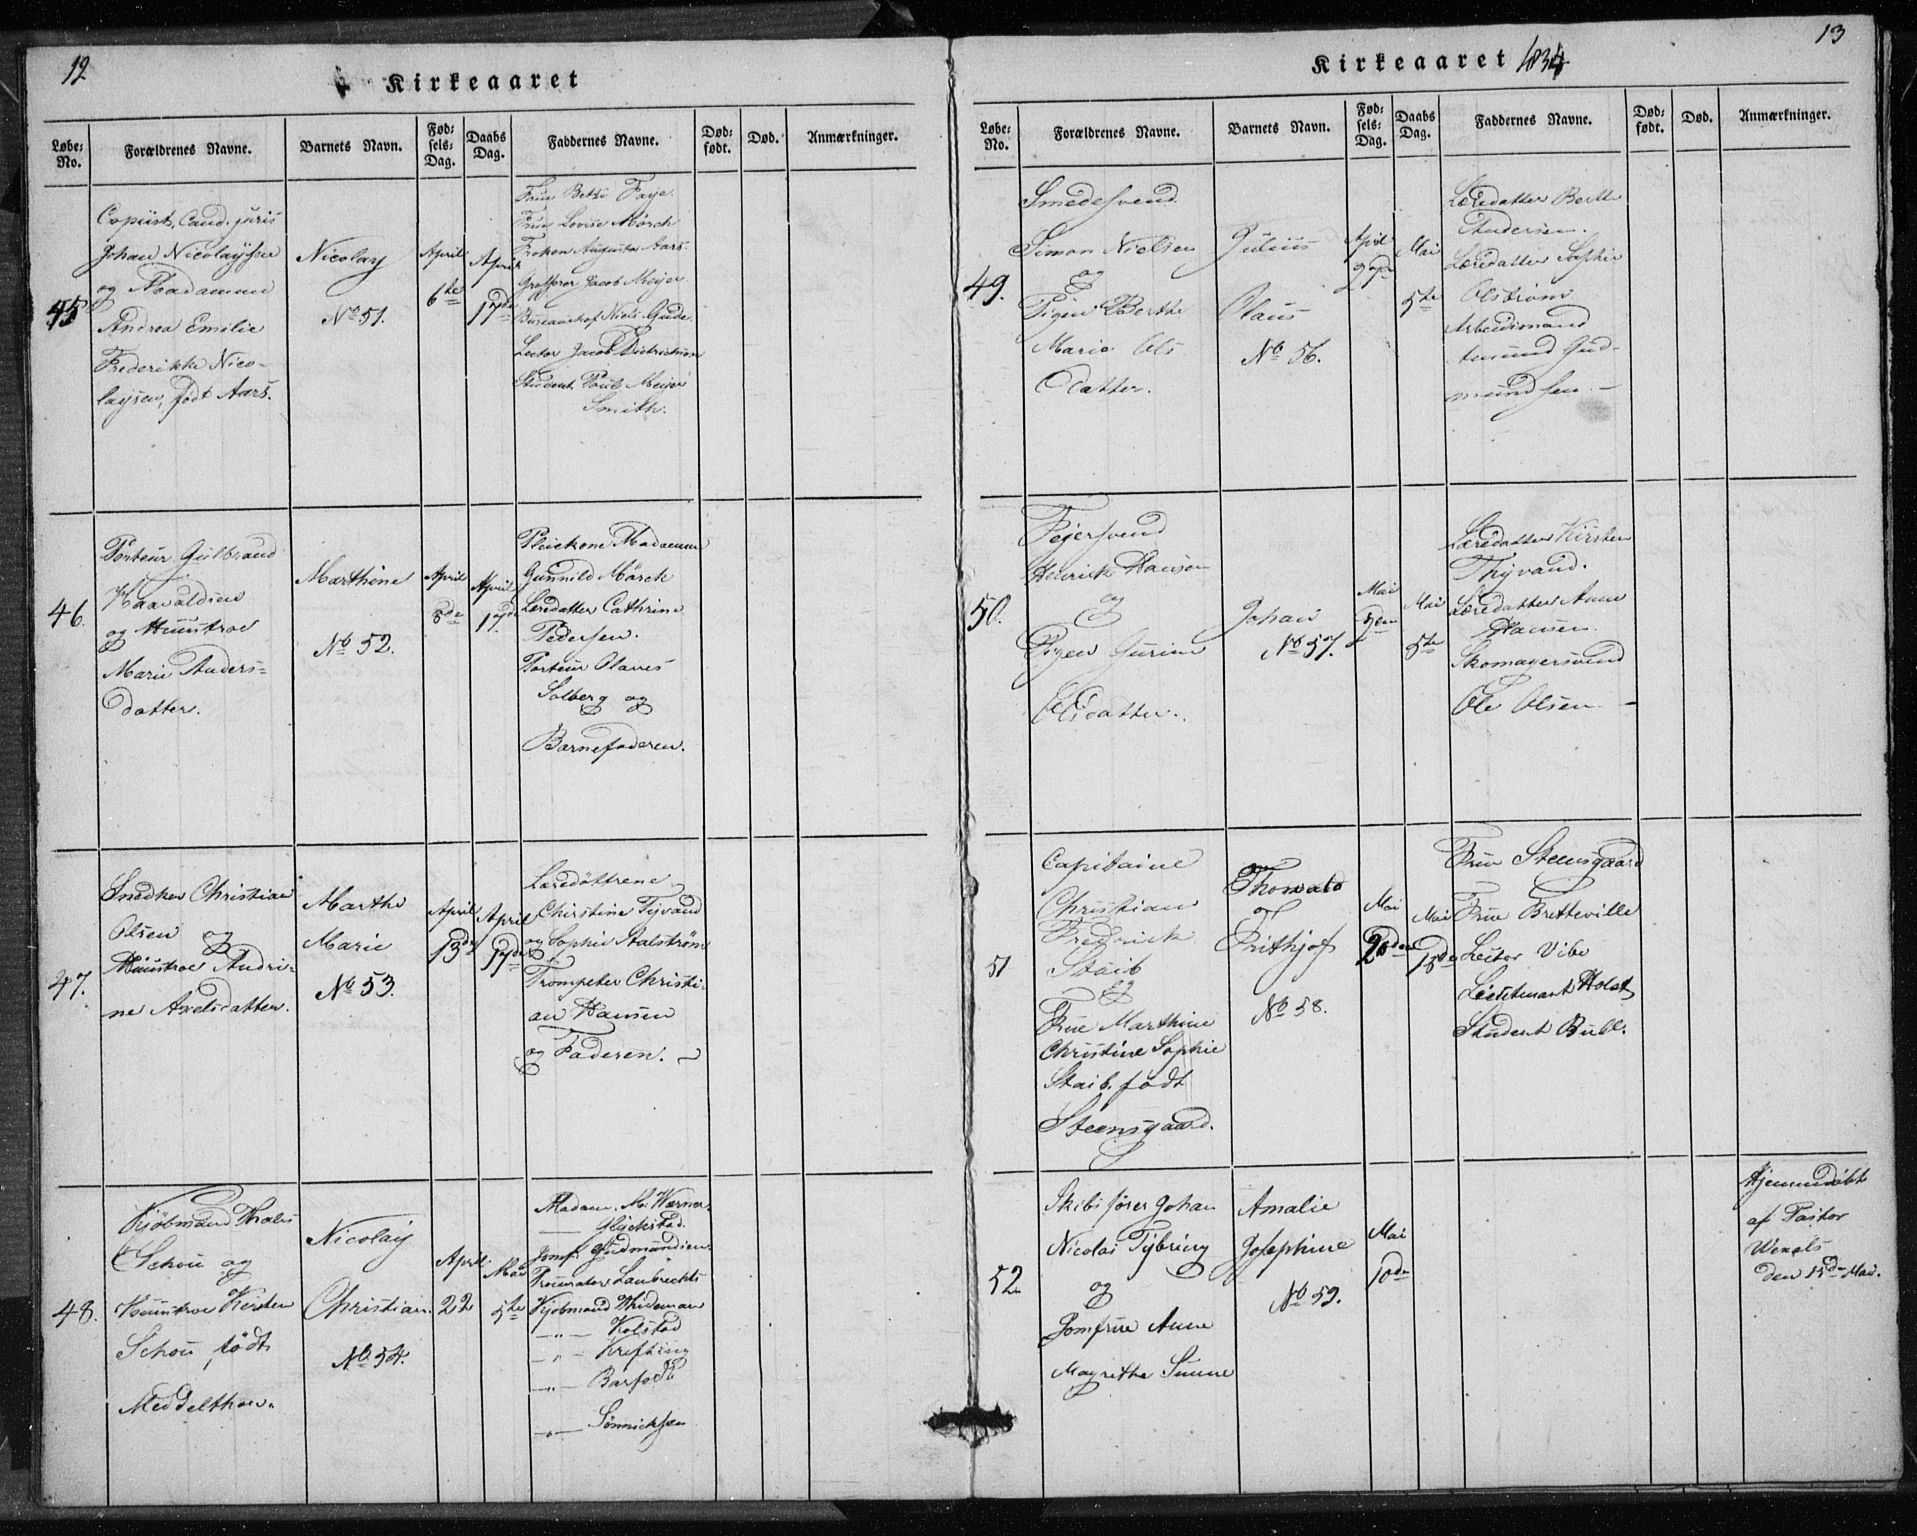 12
Kirkeaaret
Løbe-No.
Forældrenes Navne.
Barnets Navn.
Fød-sels-Dag.
Daabs Dag.
Faddernes Navne.
Død-født.
Død.
Anmærkninger.
45
Copiist, Cand. juris
Johan Nicolaysen
og Madamme
Andrea Emilie
Frederikke Nico-
laysen, født Aars.
Nicolay
No 51.
April
6te
April
17de
Frue Betzi Faye
Frue Lovise Mørch
Frøken Augusta Aars
Grosserer Jacob Meijer
Bureauchef Niels Gude
Lector Jacob Dietrichson
Student Pouls Meijer
Smith.
46.
Porteur Gulbrand
Haavaldsen
og Huustroe
Marie Anders-
datter.
Marthine
No 52.
April
8de
April
17de
Madamme
Gunnild Mørch
Læredatter Cathrine
Pedersen.
Porteur Olaves
Solberg og
Barnefaderen.
47.
Snedker Christian
Olsen og
Huustroe Andri-
ne Axelsdatter.
Marthe
Marie
No 53.
April
13de
April
17de
Læredøttrene
Christine Tyvand
og Sophie Aalstrøm
Trompeter Christi-
an Hansen
og Faderen.
48.
Kjøbmand Thales
Schou og
Huustroe Kirsten
Schou, født
Meddelthon.
Nicolay
Christian.
No 54.
April
22
Mai
5te
Madam. M. Werner
—— Glückstad.
Jomfr Gudmundsen
Procurator Lambrechts
Kjøbmand Thideman
—"— Kolstad
—"— Krefting
—"— Barfod
—"— Sønnichsen
13
Kirkeaaret 1834
Løbe-No.
Forældrenes Navne.
Barnets Navn.
Fød-sels-Dag.
Daabs Dag.
Faddernes Navne.
Død-født.
Død.
Anmærkninger.
49.
Smedesvend
Simon Nielsen
og
Pigen Berthe
Marie Ols
Datter.
Julius
Olaus
No 56.
April
Mai
5te
Læredatter Berthe
Andersen.
Læredatter Sophie
Olstrøm
Arbeidsmand
Amund Gud-
mundsen —
50.
Fejersvend
Henrick Hansen
og
Pigen Gurine
Olsdatter.
Johan
No 57.
Mai
Mai
5te
Læredatter Kirsten
Thyvand.
Læredatter Anne
Hansen.
Skomagersvend
Ole Olsen —
51
Capitaine
Christian
Fredrick
Staib
og
Frue Marthine
Christine Sophie
Staib, født
Steensgaard.
Thorwald
Frithjof
No 58.
Mai
Mai
15de
Frue Steensgaard
Frue Bretteville
Lector Vibe
Lieutenant Holst
Student Bull.
52
Skibsfører Johan
Nicolai Tybring
og
Jomfrue Anne
Magrethe Sunne
Amalie
Josephine
No 59.
Mai
10de
Hjemmedøbt
af Pastor
Wexels
den 15de Mai.